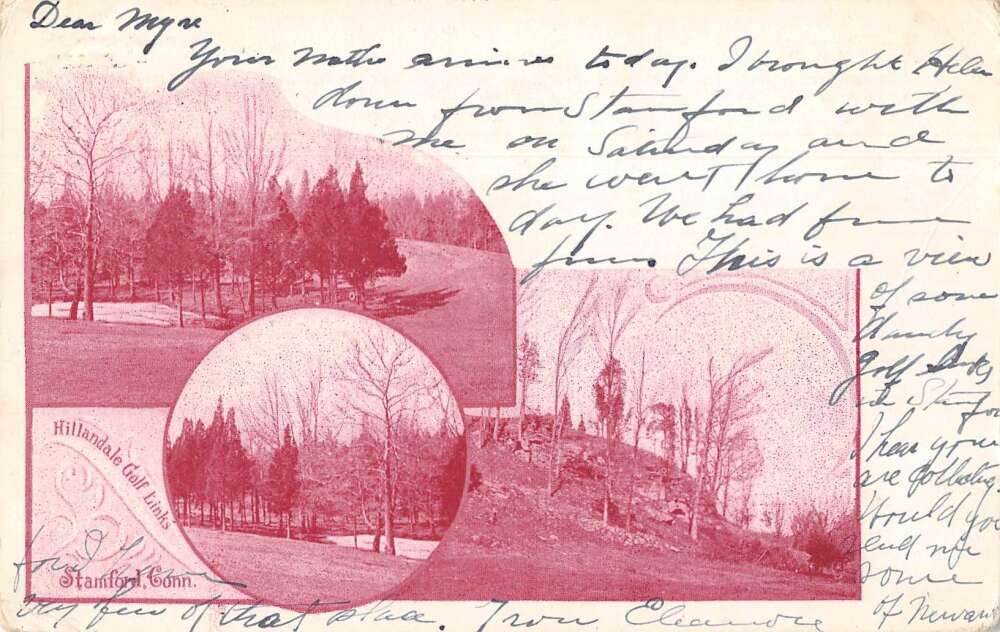 Dear Myre
Your note arrives today. I brought Helen
down from Stamford with
me on Saturday and
she went home to
day. We had fine
fun. This is a view
of some
Handy
golf Links
in Stamford
I hear you
are collecting
Would you
send me
some
of Newark
for I have
very few of that place. From Eleanore
Hillandale Golf Links
Stamford, Conn.